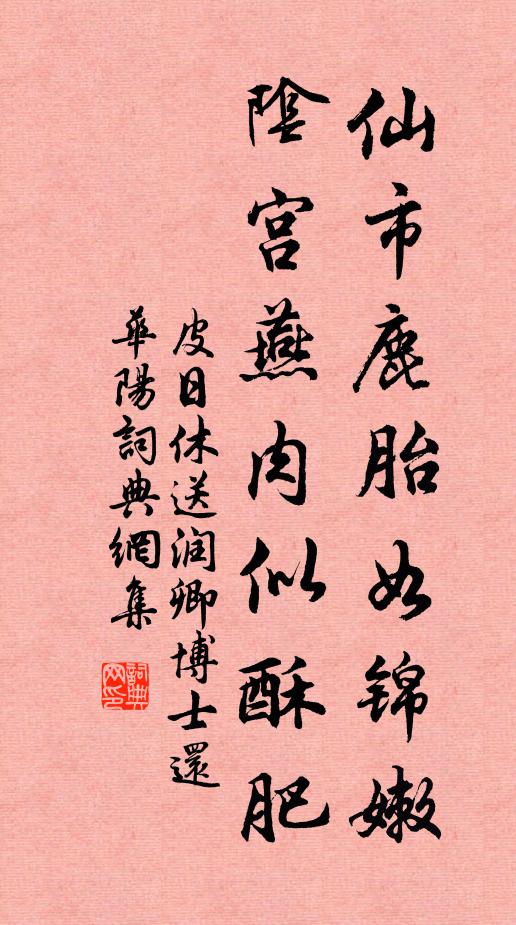 仙市鹿胎如锦嫩
陰宫燕肉似酥肥
皮日休送润卿博士還
華陽詞典網集
詞典网印